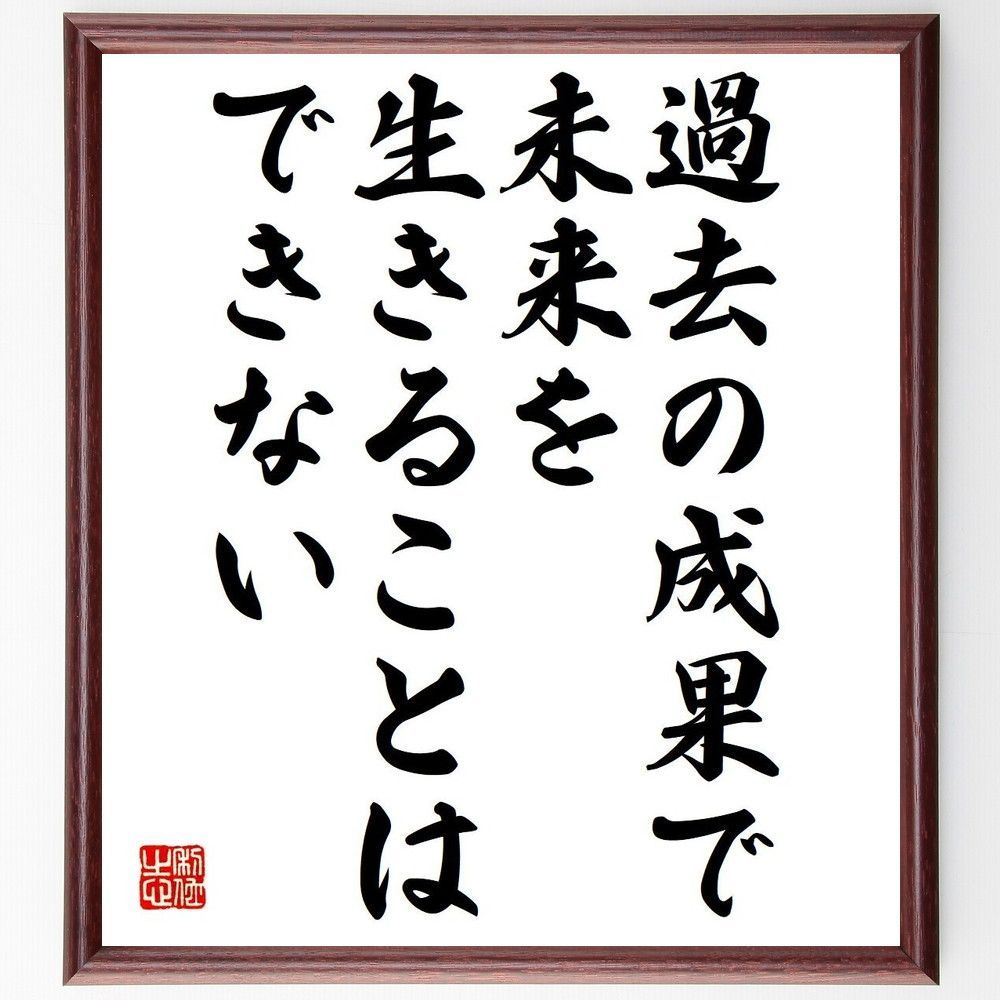 過去の成果で
未来を
生きることは
できない